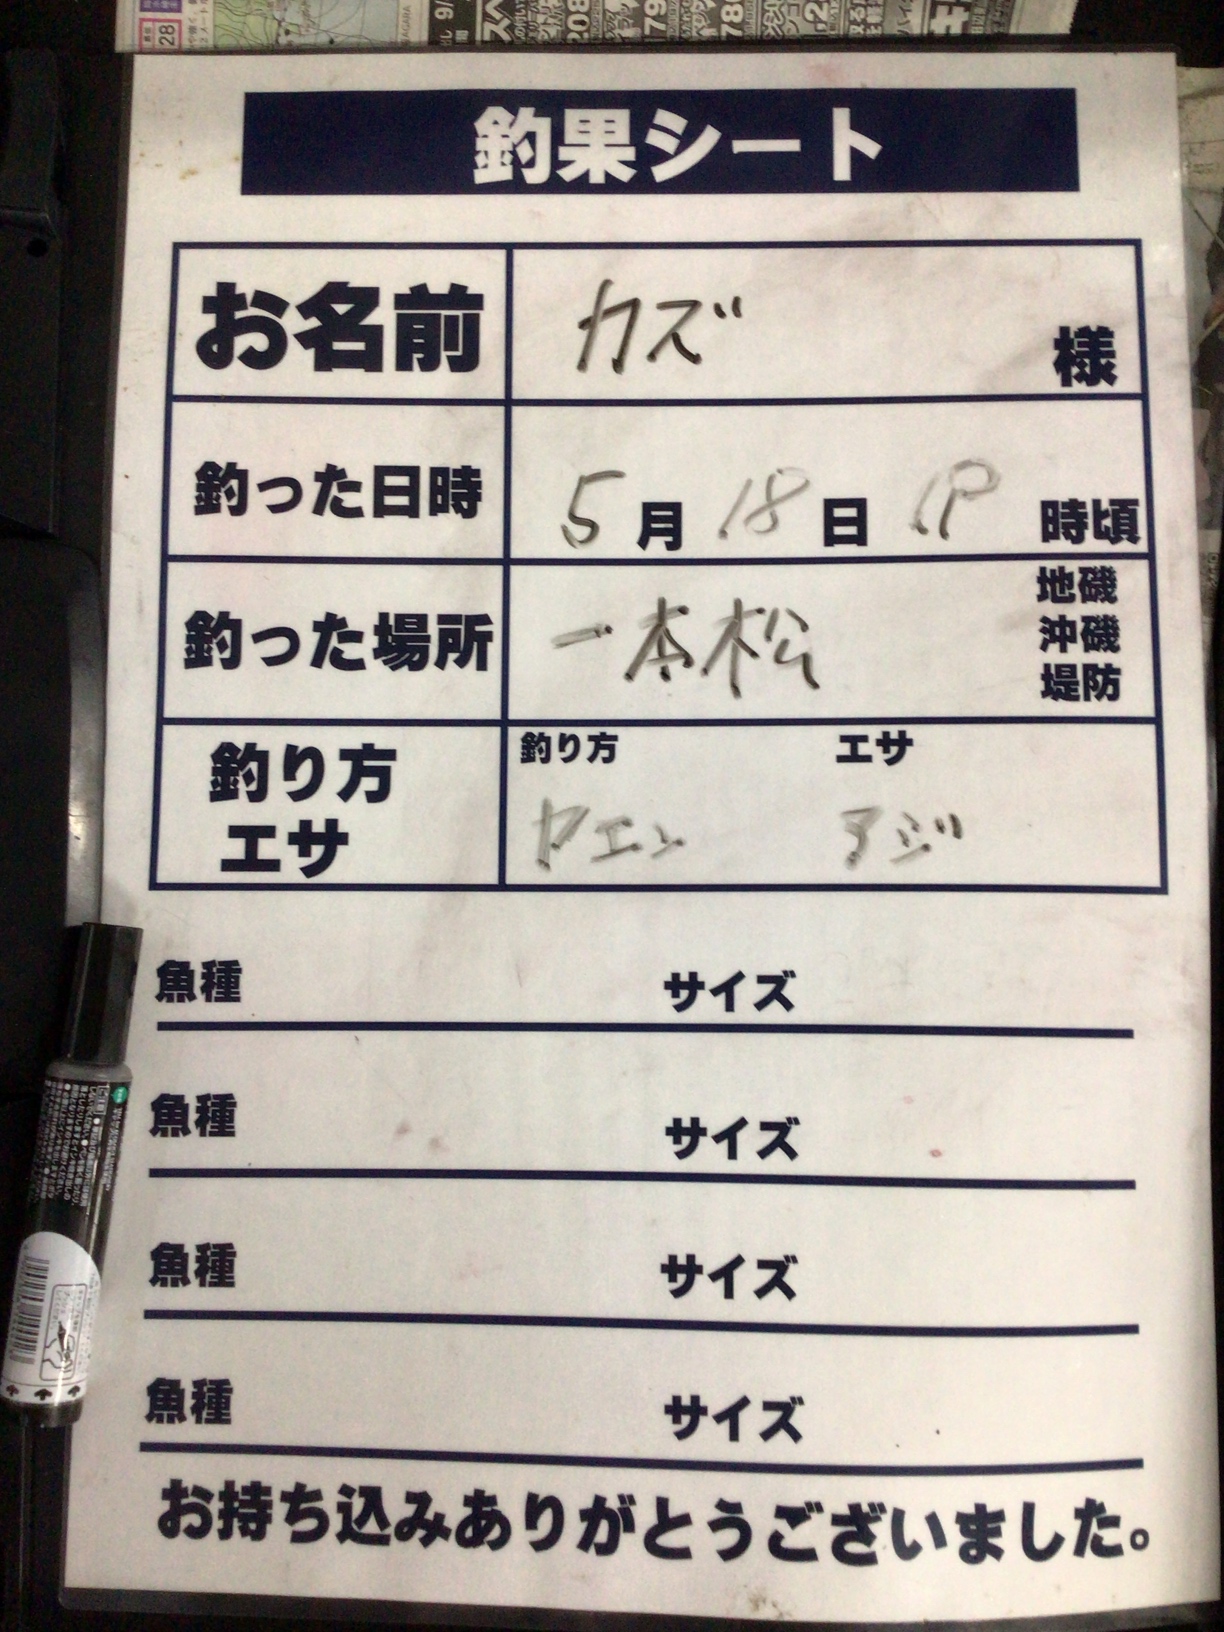 釣果シート
お名前 カズ 様
釣った日時 5月18日 時頃
釣った場所 一本松 地磯 沖磯 堤防
釣り方 エサ 釣り方 エサ
ヤエン アジ
魚種 サイズ
魚種 サイズ
魚種 サイズ
魚種 サイズ
お持ち込みありがとうございました。